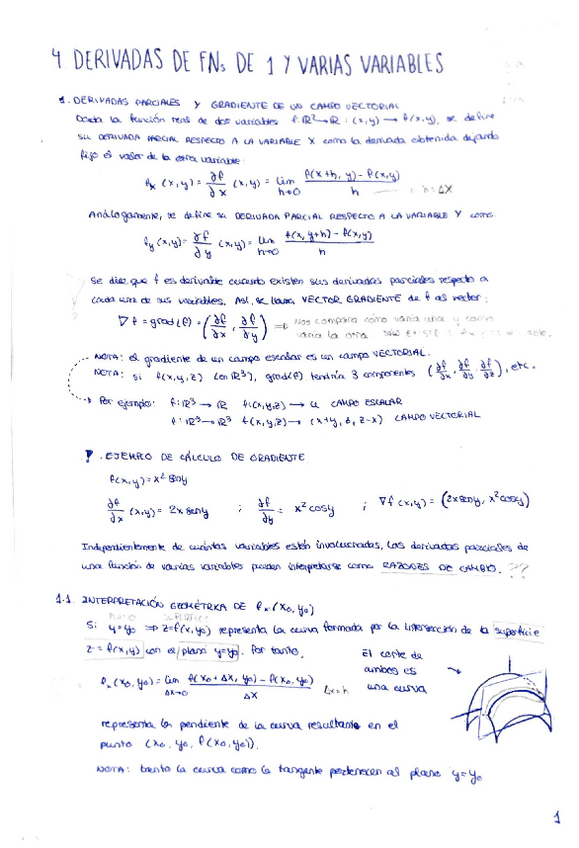 4 DERIVADAS DE FNs DE 1 Y VARIAS VARIABLES
1. DERIVADAS PARCIALES Y GRADIENTE DE UN CAMPO VECTORIAL
Dada la función real de dos variables f: ℝ² → ℝ : (x,y) → f(x,y), se define
su DERIVADA PARCIAL RESPECTO A LA VARIABLE X como la derivada obtenida dejando
fijo el valor de la otra variable:
fx (x,y) = ∂f/∂x (x,y) = lim h→0 f(x+h, y) - f(x,y) / h h = ΔX
Análogamente, se define su DERIVADA PARCIAL RESPECTO A LA VARIABLE Y como:
fy (x,y) = ∂f/∂y (x,y) = lim h→0 f(x, y+h) - f(x,y) / h
Se dice que f es derivable cuando existen sus derivadas parciales respecto a
cada una de sus variables. Así, se llama VECTOR GRADIENTE de f al vector:
∇f = grad(f) = (∂f/∂x, ∂f/∂y) ⇒ Nos compara cómo varía una y cómo
varía la otra
NOTA: el gradiente de un campo escalar es un campo VECTORIAL.
NOTA: si f(x,y,z) (en ℝ³), grad(f) tendría 3 componentes (∂f/∂x, ∂f/∂y, ∂f/∂z), etc.
Por ejemplo: f: ℝ³ → ℝ f(x,y,z) → u CAMPO ESCALAR
f: ℝ³ → ℝ³ f(x,y,z) → (x+y, z, z-x) CAMPO VECTORIAL
EJEMPLO DE CÁLCULO DE GRADIENTE
f(x,y) = x² seny
∂f/∂x (x,y) = 2x seny ; ∂f/∂y = x² cosy ; ∇f (x,y) = (2x seny, x² cosy)
Independientemente de cuántas variables estén involucradas, las derivadas parciales de
una función de varias variables pueden interpretarse como RAZONES DE CAMBIO. ??
1.1. INTERPRETACIÓN GEOMÉTRICA DE fx (x0, y0)
Si y=y0 ⇒ z=f(x,y0) representa la curva formada por la intersección de la superficie
z = f(x,y) con el plano y=y0. Por tanto,
El corte de
ambos es
una curva
fx (x0, y0) = lim Δx→0 f(x0 + Δx, y0) - f(x0, y0) / ΔX Δx = h
representa la pendiente de la curva resultante en el
punto (x0, y0, f(x0, y0)).
NOTA: tanto la curva como la tangente pertenecen al plano y = y0
1